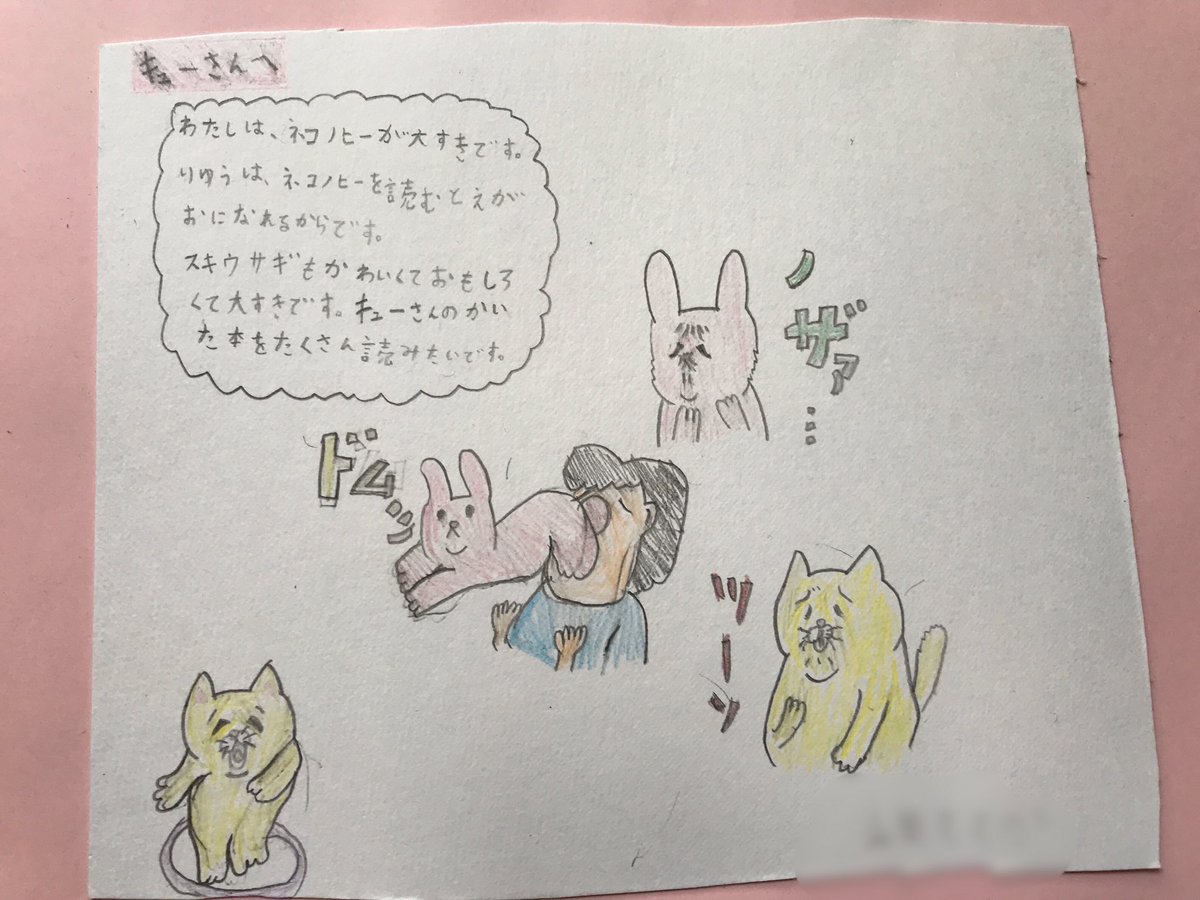 キューさんへ
わたしは、ネコノヒーが大すきです。
りゆうは、ネコノヒーを読むとえが
おになれるからです。
スキウサギもかわいくておもしろ
くて大すきです。キューさんのかい
た本をたくさん読みたいです。
ノザァ…
ドムッ
ツーン